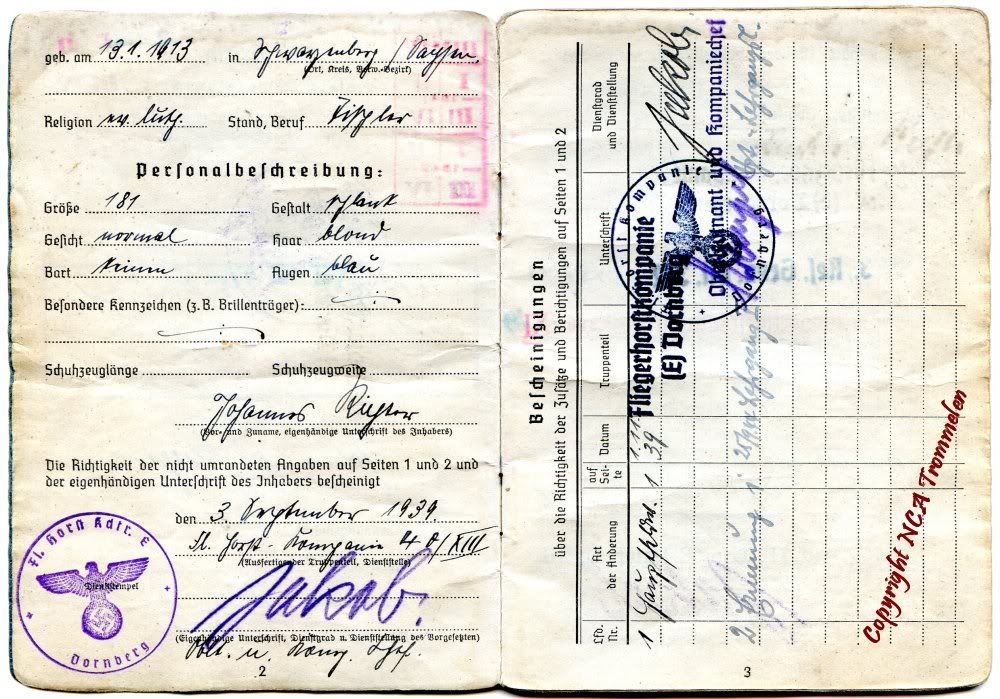 geb. am 13.1.1913 in Schwarzenberg / Sachsen
(Ort, Kreis, Verw.-Bezirk)
Religion ev. luth. Stand, Beruf Tischler
Personalbeschreibung:
Größe 181 Gestalt schlank
Gesicht normal Haar blond
Bart keinen Augen blau
Besondere Kennzeichen (z. B. Brillenträger):
Schuhzeuglänge Schuhzeugweite
Johannes Richter
(Vor- und Zuname, eigenhändige Unterschrift des Inhabers)
Die Richtigkeit der nicht umrandeten Angaben auf Seiten 1 und 2 und
der eigenhändigen Unterschrift des Inhabers bescheinigt
den 3. September 1939
Fl. Horst-Kompanie XIII
(Ausfertigender Truppenteil, Dienststelle)
Fl. Horst Kdtr. E
Dienststempel
Dornberg
Jakob
(Eigenhändige Unterschrift, Dienstgrad u. Dienststellung des Vorgesetzten)
Oblt. u. Komp. Chef.
2
Bescheinigungen
über die Richtigkeit der Zusätze und Berichtigungen auf Seiten 1 und 2
Lfd. Nr.
Art der Änderung
auf Seite
Datum
Truppenteil
Unterschrift
Dienstgrad und Dienststellung
1
1
39
Fliegerhorstkompanie
(E) Dornberg
Jakob
Oberleutnant und Kompaniechef
2
3
Copyright NCA Trommelen